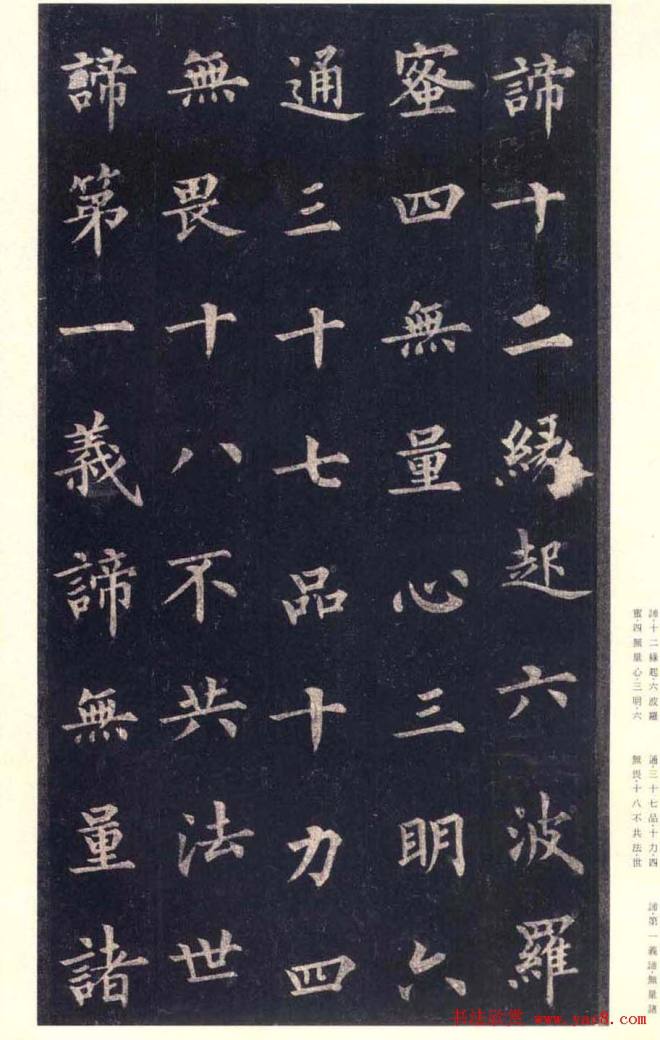 諦十二緣起六波羅
蜜四無量心三明六
通三十七品十力四
無畏十八不共法世
諦第一義諦無量諸
諦·十二緣起·六波羅
蜜·四無量心·三明·六
通·三十七品·十力·四
無畏·十八不共法·世
諦·第一義諦·無量諸
书法欣赏 www.yac8.com